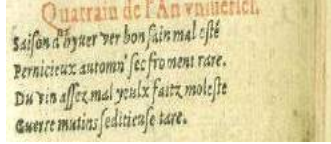 Quatrain de l'An vniuersel.
Saiſon d'hyuer ver bon ſain mal eſté
Pernicieux automn' ſec froment rare.
Du vin aſſez mal yeulx faitz moleſte
Guerre mutins ſeditieuſe tare.